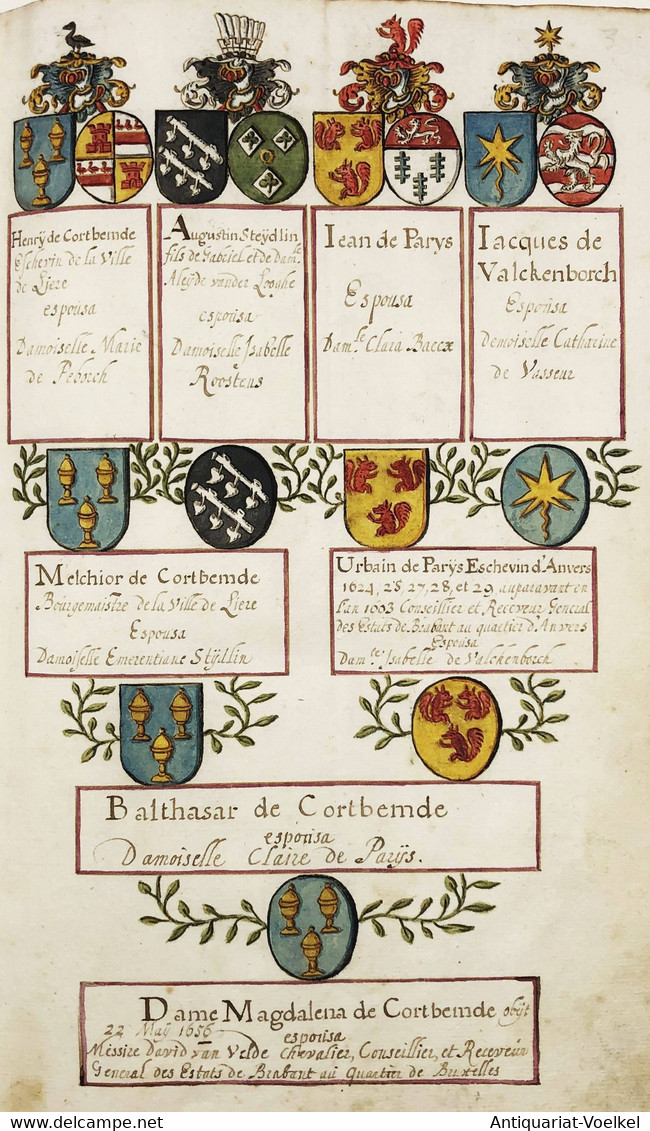 3
Henrÿ de Cortbemde
Eschevin de la Ville
de Liere
espousa
Damoiselle Marie
de Peborch
Augustin Steÿdlin
fils de Gabriel et de Dam.le
Aleÿde vander Looghe
espousa
Damoiselle Isabelle
Roostens
Iean de Parys
Espousa
Dam.le Clara Baecx
Iacques de
Valckenborch
Espousa
Demoiselle Catharine
de Vasseur
Melchior de Cortbemde
Bourgemaistre de la Ville de Liere
Espousa
Damoiselle Emerentiane Stÿdlin
Urbain de Parÿs Eschevin d'Anvers
1624, 25, 27, 28, et 29, auparavant en
l'an 1603 Conseillier et Receveur General
des Estats de Brabant au quartier d'Anvers
Espousa
Dam.le Isabelle de Valckenborck
Balthasar de Cortbemde
espousa
Damoiselle Claire de Parÿs.
Dame Magdalena de Cortbemde obÿt
22 Maÿ 1656
espousa
Messire David van Velde Chevalier, Conseillier, et Receveur
General des Estats de Brabant au Quartier de Bruxelles
Antiquariat-Voelkel